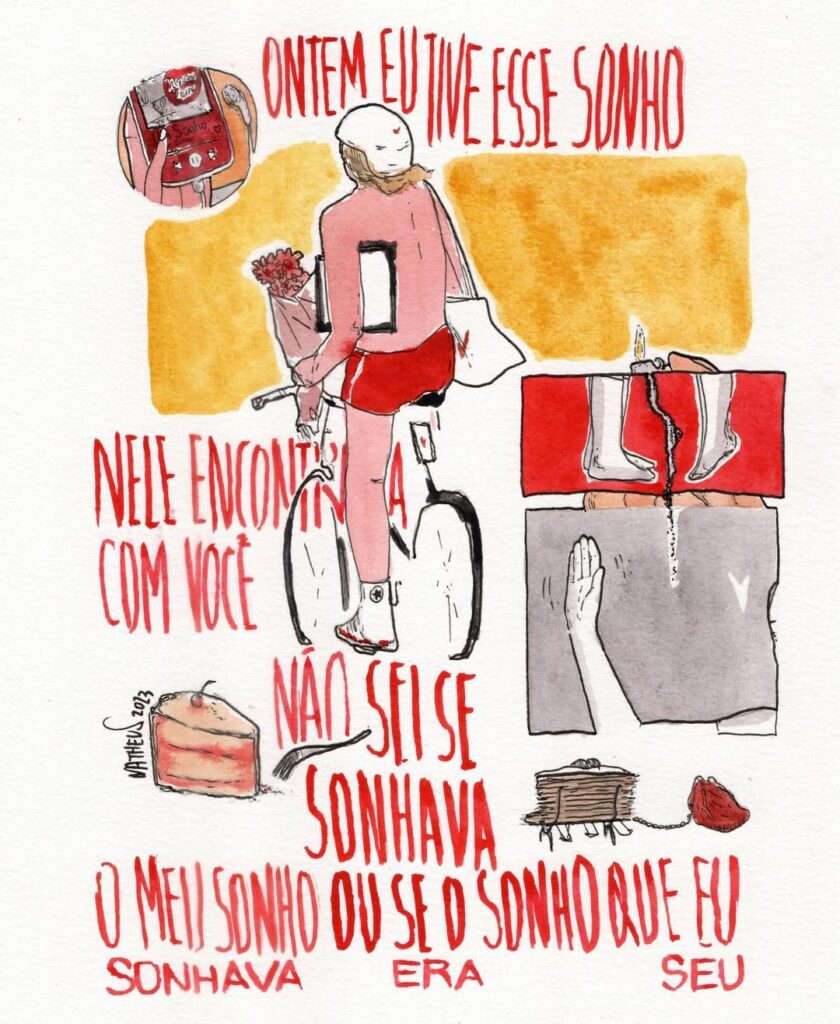 ONTEM EU TIVE ESSE SONHO
Sonho
NELE ENCONTRAVA
COM VOCÊ
NÃO SEI SE
SONHAVA
O MEU SONHO OU SE O SONHO QUE EU
SONHAVA ERA SEU
MATHEUS 2023